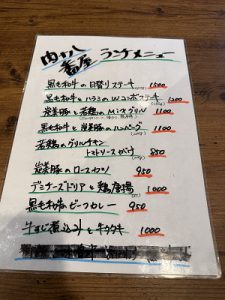 肉が八
蕃屋 ランチメニュー
黒毛和牛の日替りステーキ 1500
黒毛和牛とハラミのWコンボステーキ 1200
炭美豚と若鶏のMixグリル 1100
黒毛和牛のハンバーグ 1100
若鶏のグリルチキン
トマトソースがけ 850
炭美豚のロースカツ 950
デミチーズドリアと鶏唐揚 1000
黒毛和牛ビーフカレー 950
牛すじ煮込みと牛タタキ 1000